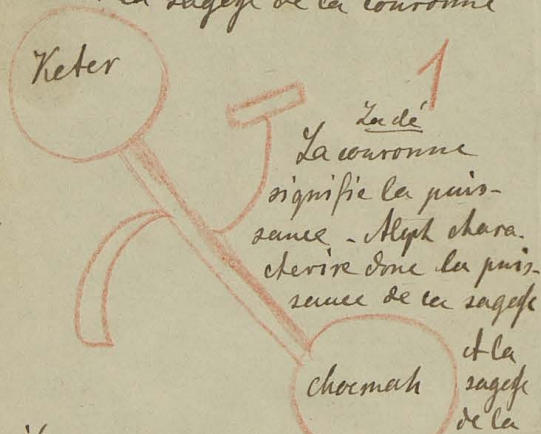 la sagesse de la couronne
Keter
1
Zadé
La couronne
signifie la puis-
sance - Aleph chara-
cterire donc la puis-
sance de la sagesse
et la
sagesse
de la
chocmah